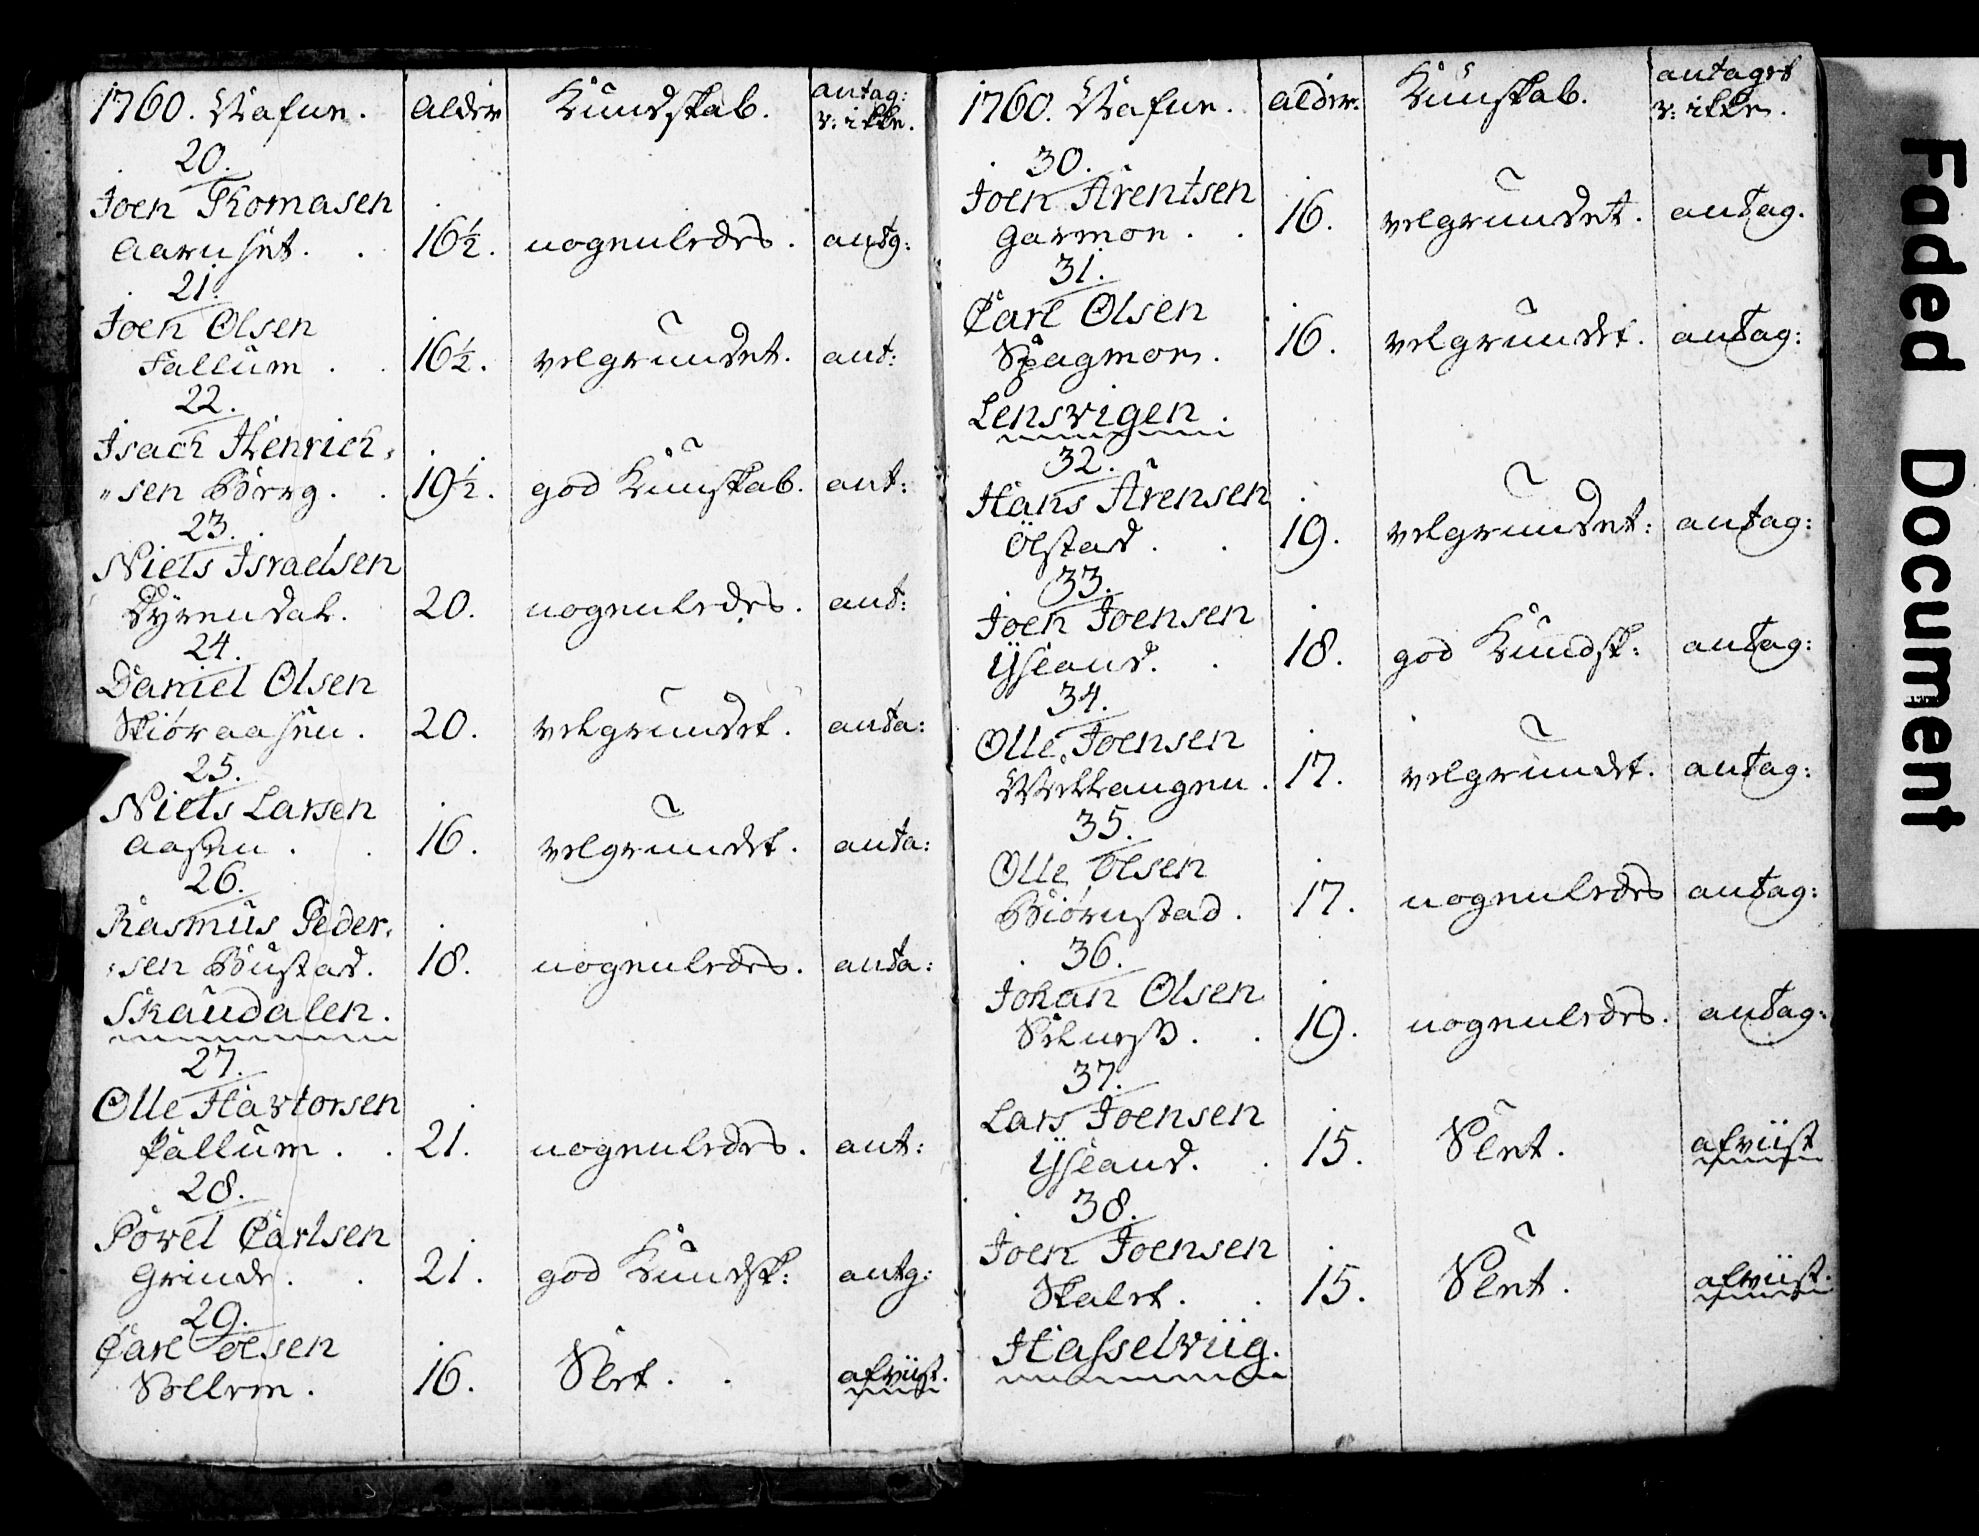 1760. Nafne. alder Kundskab. antag: v: ikke.
20.
Joen Thomasen
Aarnset. 16½. nogenledes. antg:
21.
Joen Olsen
Fallum. 16½. velgrundet. ant:
22.
Isach Henrich,
"sen Börrg. 19½. god Kunskab. ant:
23.
Niels Israelsen
Dyrendal. 20. nogenledes. ant:
24.
Daniel Olsen
Skiøraasen. 20. velgrundet. anta:
25.
Niels Larsen
Aasen. 16. velgrundet. anta:
26.
Rasmus Peder,
:sen Bustad. 18. nogenledes. anta:
Skaudalen.
27.
Olle Havtorsen
Pallum. 21. nogenledes. ant:
28.
Povel Carlsen
Grinde. 21. god Kundsk: antg:
29.
Carl Olsen
Sollem. 16. Slet. afviist.
1760. Nafne. alder. Kunskab. antaget v: ikke.
30.
Joen Arentsen
Garmoe. 16. velgrundet. antag.
31.
Carl Olsen
Spagmoe. 16. velgrundet. antag:
Lensvigen.
32.
Hans Arensen
Ølstad. 19. velgrundet: antag:
33.
Joen Joensen
Ysland. 18. god Kundsk: antag:
34.
Olle Joensen
17. velgrundet. antag:
35.
Olle Olsen
Biørnstad. 17. nogenledes antag:
36.
Johan Olsen
Selness. 19. nogenledes. antag:
37.
Lars Joensen
Ysland. 15. Slet. afviist
38.
Joen Joensen
Skalet. 15. Slet. afviist.
Hasselviig.
Faded Document